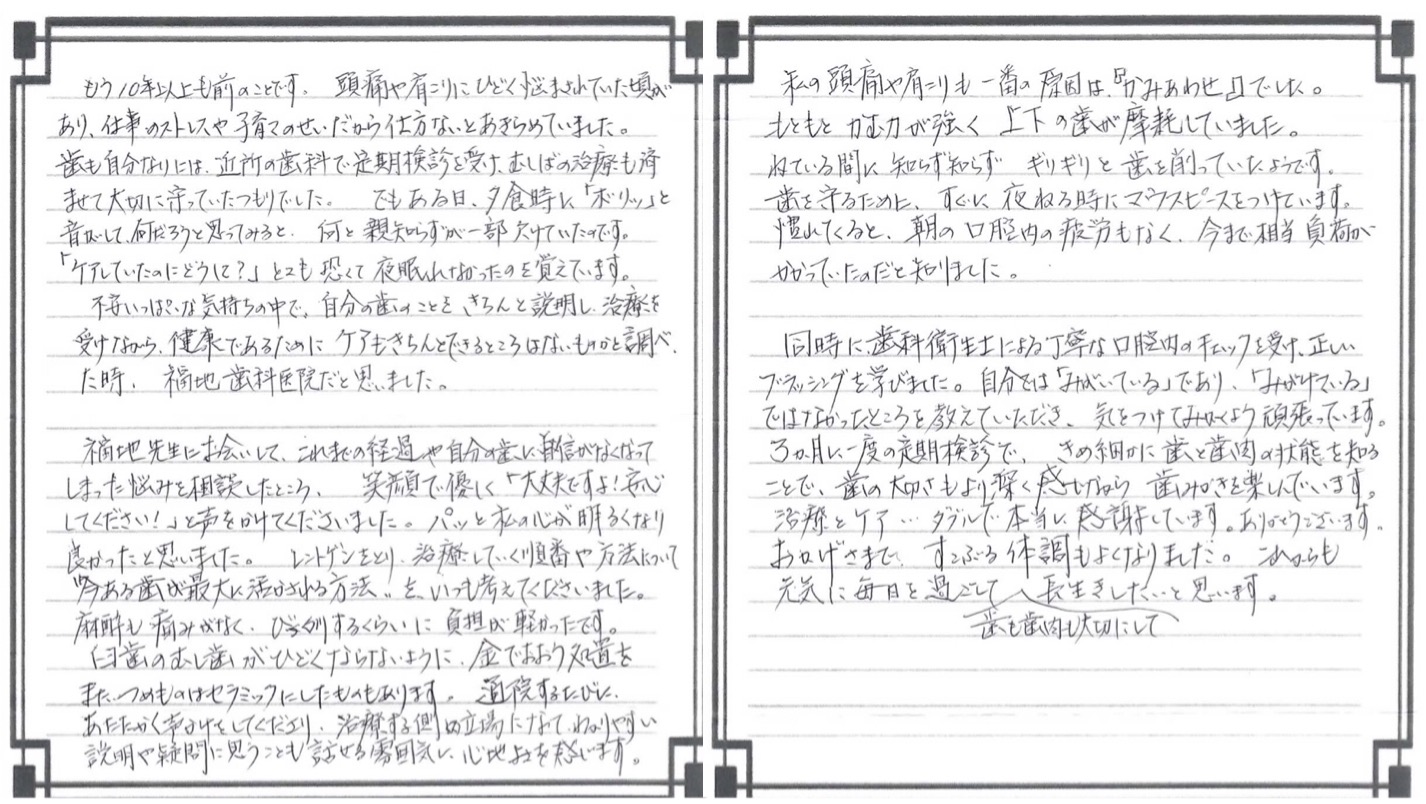 もう10年以上も前のことです。 頭痛や肩こりにひどく悩まされていた頃が
あり、仕事のストレスや子育てのせいだから仕方ないとあきらめていました。
歯も自分なりには、近所の歯科で定期検診を受け、むしばの治療も済
ませて大切に守っていたつもりでした。 でもある日、夕食時に「ボリッ」と
音がして、何だろうと思ってみると、何と親知らずが一部欠けていたのです。
「ケアしていたのにどうして?」とても恐くて夜眠れなかったのを覚えています。
不安いっぱいな気持ちの中で、自分の歯のことをきちんと説明し、治療を
受けながら、健康であるためにケアもきちんとできるところはないものかと調べ
た時、福地歯科医院だと思いました。
福地先生にお会いして、これまでの経過や自分の歯に自信がなくなって
しまった悩みを相談したところ、 笑顔で優しく「大丈夫ですよ!安心
してください!」と声をかけてくださいました。パッと私の心が明るくなり
良かったと思いました。 レントゲンをとり、治療していく順番や方法について
"今ある歯が最大に活かされる方法"を、いつも考えてくださいました。
麻酔も痛みがなく、びっくりするくらいに負担が軽かったです。
臼歯のむし歯がひどくならないように、金でおおう処置を
また、つめものはセラミックにしたものもあります。 通院するたびに、
あたたかく声かけをしてくださり、治療する側の立場になって、わかりやすい
説明や疑問に思うことも話せる雰囲気に、心地よさを感じます。
私の頭痛や肩こりも一番の原因は、『かみあわせ』でした。
もともとかむ力が強く 上下の歯が摩耗していました。
ねている間に知らず知らず ギリギリと歯を削っていたようです。
歯を守るために、すぐに夜ねる時にマウスピースをつけています。
慣れてくると、朝の口腔内の疲労もなく、今まで相当負荷が
かかっていたのだと知りました。
同時に、歯科衛生士による丁寧な口腔内のチェックを受け、正しい
ブラッシングを学びました。自分では「みがいている」であり、「みがけている」
ではなかったところを教えていただき、気をつけてみがくよう頑張っています。
3か月に一度の定期検診で、 きめ細かに歯と歯肉の状態を知る
ことで、歯の大切さもより深く感じながら 歯みがきを楽しんでいます。
治療とケア…ダブルで本当に感謝しています。ありがとうございます。
おかげさまで、すこぶる体調もよくなりました。 これからも
元気に毎日を過ごして、長生きしたいと思います。
歯も歯肉も大切にして